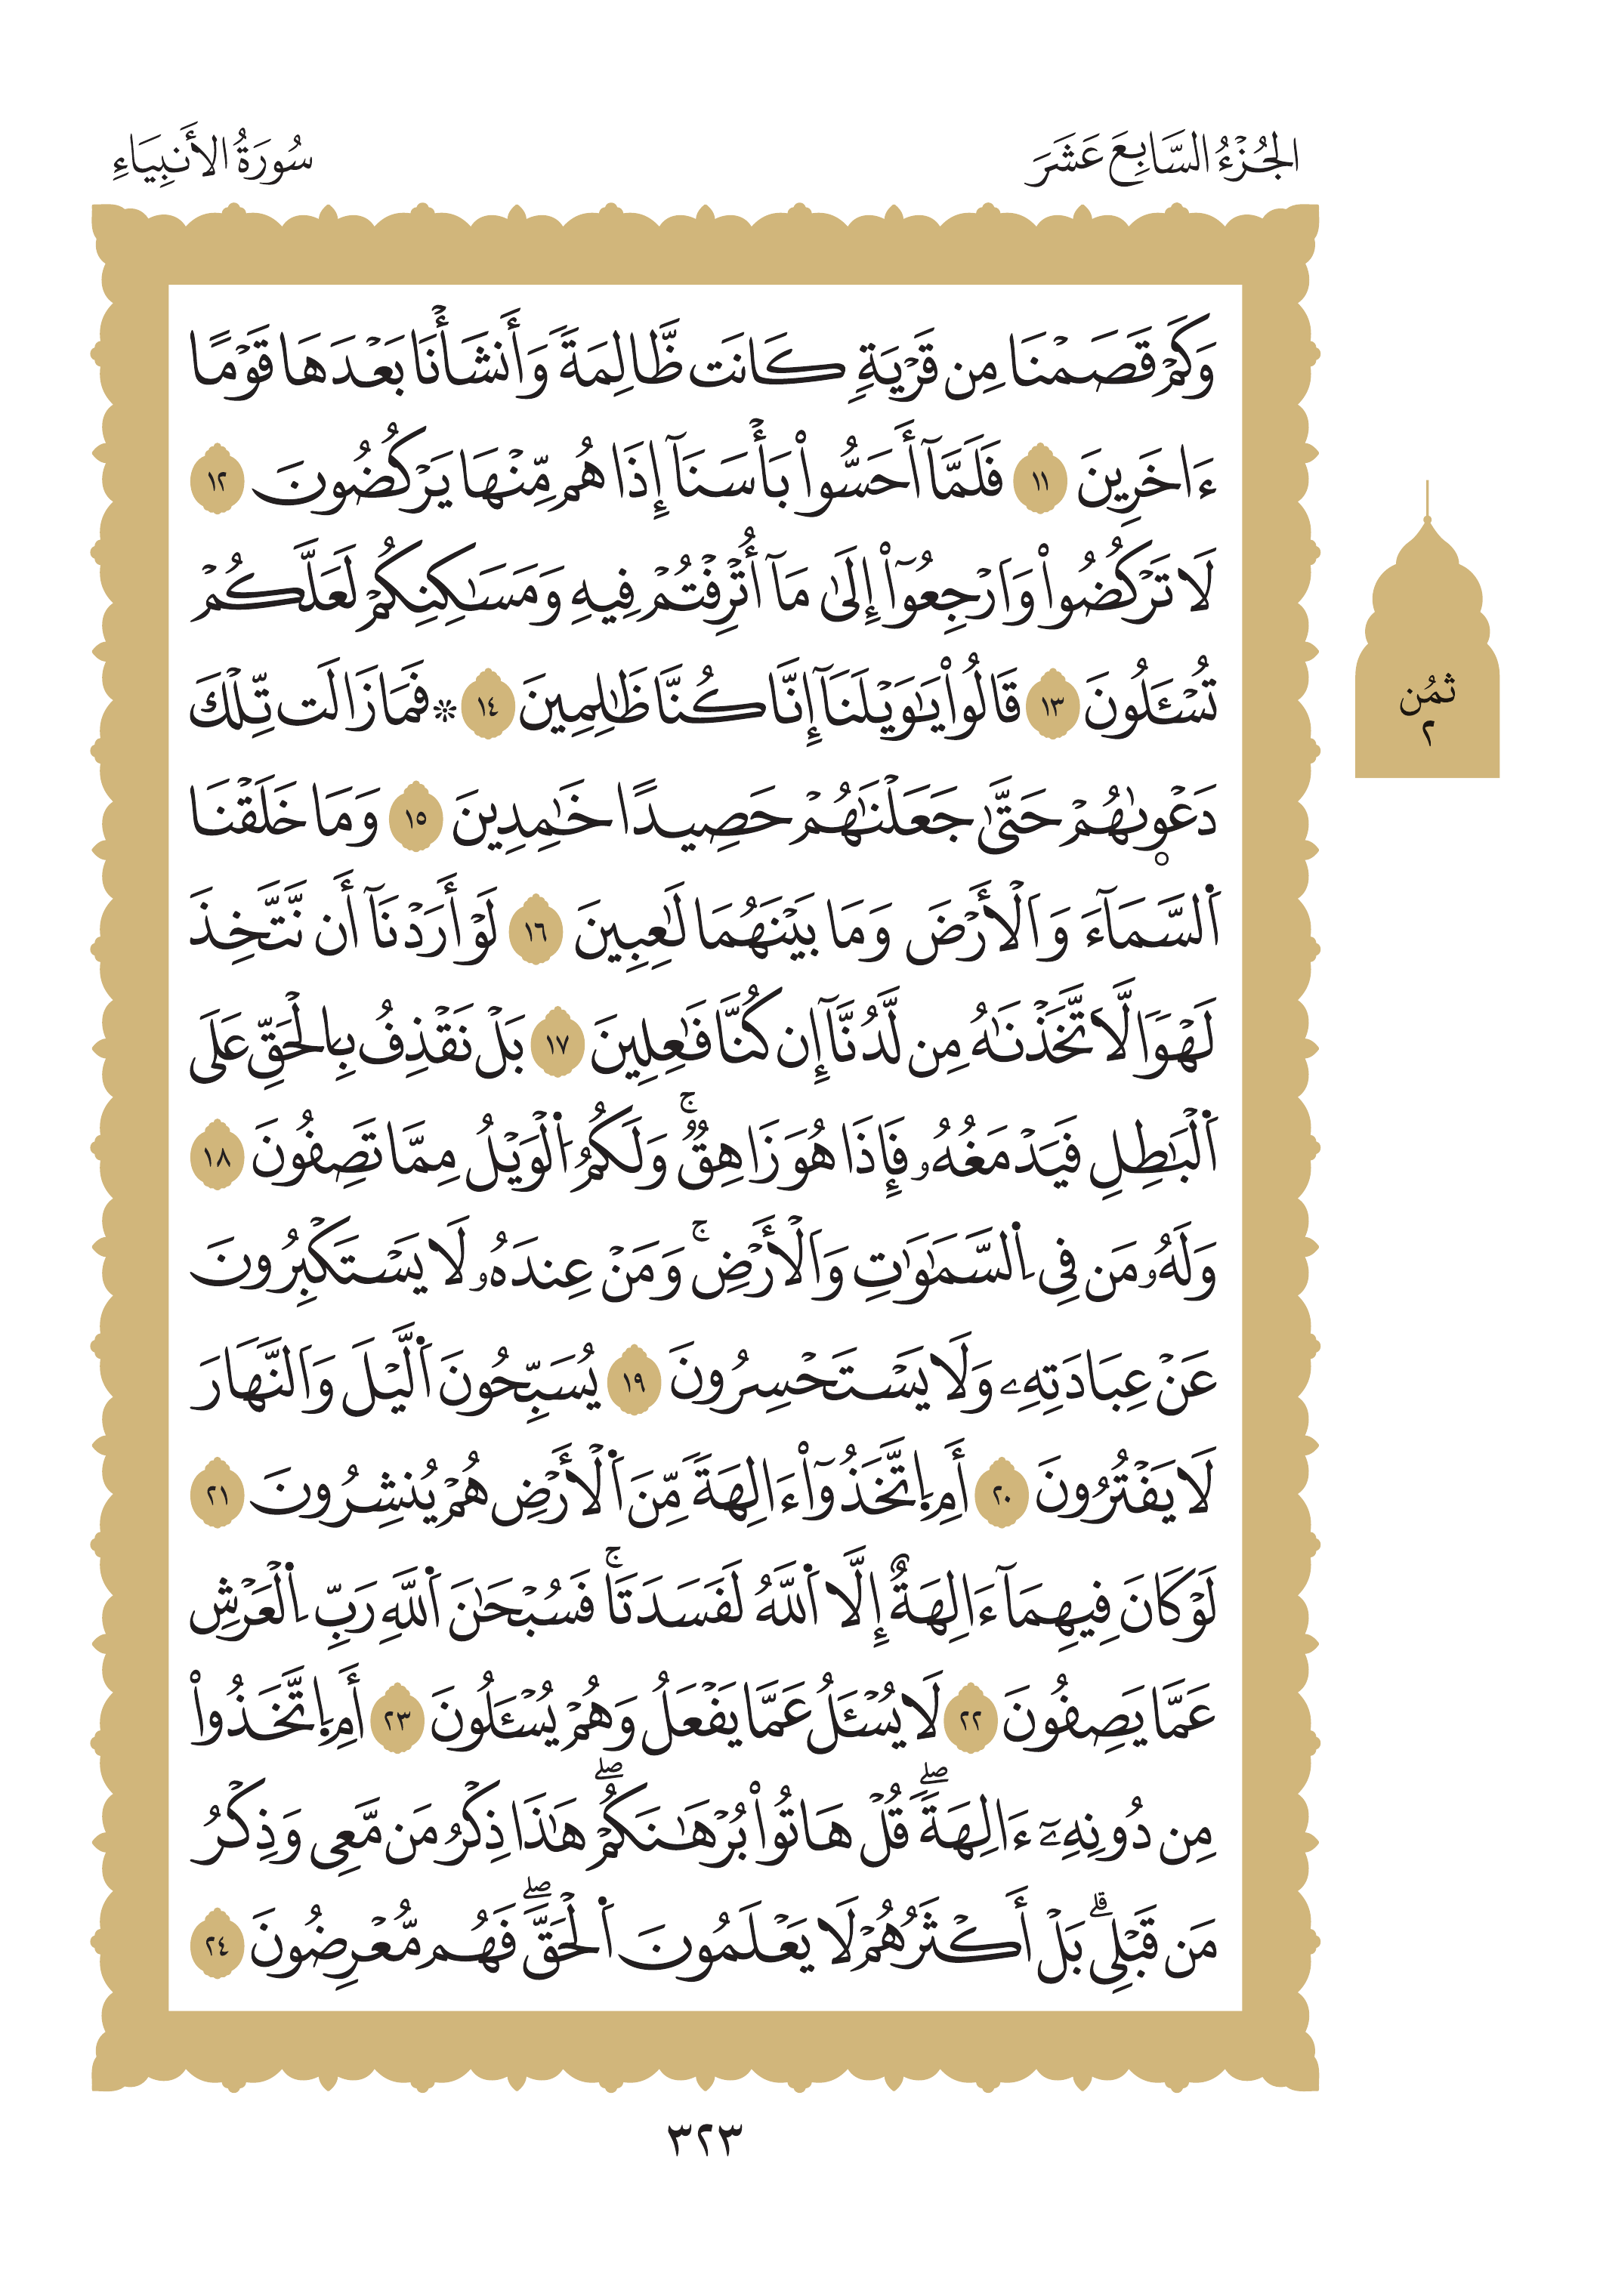 الجُزْءُ السَّابِعَ عَشَرَ
سُورَةُ الأَنبِيَاءِ
وَكَمْ قَصَمْنَا مِن قَرْيَةٍ كَانَت ظَّالِمَةً وَأَنشَأْنَا بَعْدَهَا قَوْمًا
ءَاخَرِينَ ١١ فَلَمَّآ أَحَسُّواْ بَأْسَنَآ إِذَا هُم مِّنْهَا يَرْكُضُونَ ١٢
لَا تَرْكُضُواْ وَاَرْجِعُوٓاْ إِلَىٰ مَآ أُتْرِفْتُمْ فِيهِ وَمَسَٰكِنِكُمْ لَعَلَّكُمْ
تُسْـَٔلُونَ ١٣ قَالُواْ يَٰوَيْلَنَآ إِنَّا كُنَّا ظَٰلِمِينَ ١٤ ۞ فَمَا زَالَت تِّلْكَ
دَعْوىٰهُمْ حَتَّىٰ جَعَلْنَٰهُمْ حَصِيدًا خَٰمِدِينَ ١٥ وَمَا خَلَقْنَا
اَ۬لسَّمَآءَ وَاَلْأَرْضَ وَمَا بَيْنَهُمَا لَٰعِبِينَ ١٦ لَوْ أَرَدْنَآ أَن نَّتَّخِذَ
لَهْوًا لَّاَتَّخَذْنَٰهُ مِن لَّدُنَّآ إِن كُنَّا فَٰعِلِينَ ١٧ بَلْ نَقْذِفُ بِالْحَقِّ عَلَى
اَ۬لْبَٰطِلِ فَيَدْمَغُهُۥ فَإِذَا هُوَ زَاهِقٌۚ وَلَكُمُ اُ۬لْوَيْلُ مِمَّا تَصِفُونَ ١٨
وَلَهُۥ مَن فِى اِ۬لسَّمَٰوَٰتِ وَاَلْأَرْضِۚ وَمَنْ عِندَهُۥ لَا يَسْتَكْبِرُونَ
عَنْ عِبَادَتِهِۦ وَلَا يَسْتَحْسِرُونَ ١٩ يُسَبِّحُونَ اَ۬لَّيْلَ وَاَلنَّهَارَ
لَا يَفْتُرُونَ ٢٠ أَمِ اِتَّخَذُوٓاْ ءَالِهَةً مِّنَ اَ۬لْأَرْضِ هُمْ يُنشِرُونَ ٢١
لَوْ كَانَ فِيهِمَآ ءَالِهَةٌ إِلَّا اَ۬للَّهُ لَفَسَدَتَاۚ فَسُبْحَٰنَ اَ۬للَّهِ رَبِّ اِ۬لْعَرْشِ
عَمَّا يَصِفُونَ ٢٢ لَا يُسْـَٔلُ عَمَّا يَفْعَلُ وَهُمْ يُسْـَٔلُونَ ٢٣ أَمِ اِتَّخَذُواْ
مِن دُونِهِۦٓ ءَالِهَةًۖ قُلْ هَاتُواْ بُرْهَٰنَكُمْۖ هَٰذَا ذِكْرُ مَن مَّعِى وَذِكْرُ
مَن قَبْلِىۗ بَلْ أَكْثَرُهُمْ لَا يَعْلَمُونَ اَ۬لْحَقَّۖ فَهُم مُّعْرِضُونَ ٢٤
ثمُن
٢
٣٢٣